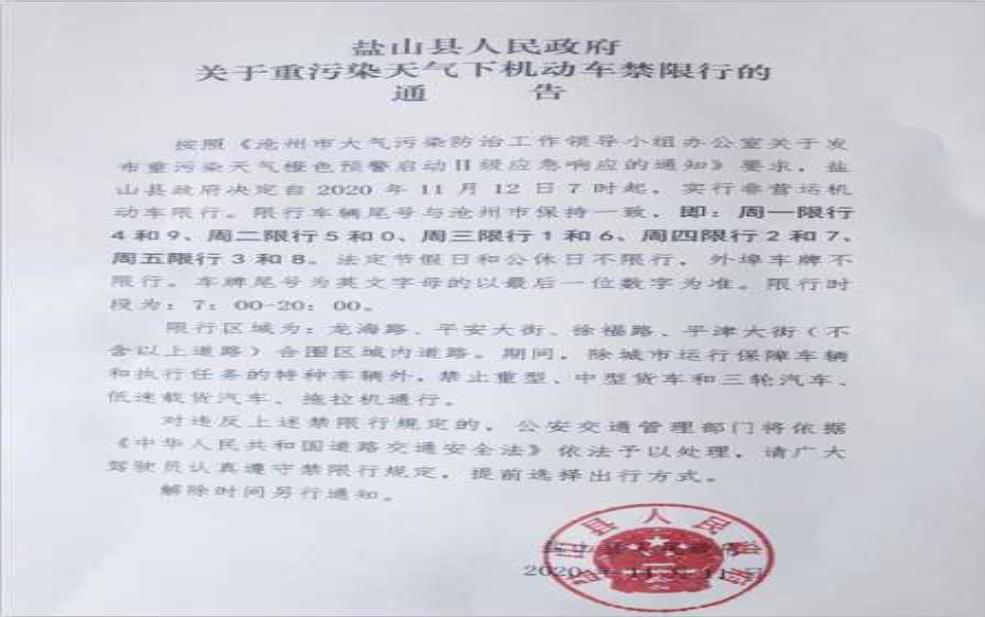 盐山县人民政府
关于重污染天气下机动车禁限行的
通 告
按照《沧州市大气污染防治工作领导小组办公室关于发
布重污染天气橙色预警启动Ⅱ级应急响应的通知》要求，盐
山县政府决定自 2020 年 11 月 12 日 7 时起，实行非营运机
动车限行。限行车辆尾号与沧州市保持一致，即：周一限行
4 和 9、周二限行 5 和 0、周三限行 1 和 6、周四限行 2 和 7、
周五限行 3 和 8。法定节假日和公休日不限行，外埠车牌不
限行。车牌尾号为英文字母的以最后一位数字为准。限行时
段为：7：00-20：00。
限行区域为：龙海路、平安大街、徐福路、平津大街（不
含以上道路）合围区域内道路。期间，除城市运行保障车辆
和执行任务的特种车辆外，禁止重型、中型货车和三轮汽车、
低速载货汽车、拖拉机通行。
对违反上述禁限行规定的，公安交通管理部门将依据
《中华人民共和国道路交通安全法》依法予以处理，请广大
驾驶员认真遵守禁限行规定，提前选择出行方式。
解除时间另行通知。
盐山县人民政府
2020 年 11 月 11 日